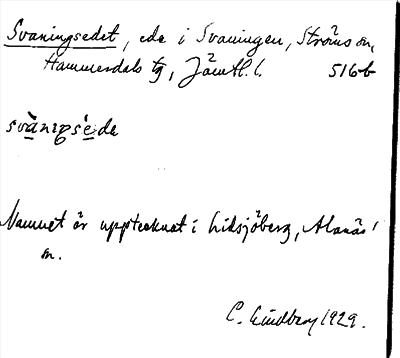 Svaningsedet, ede i Svaningen, Ströms sn,
Hammerdals tg, Jämtl. l. 516b
svànıŋsède
Namnet är upptecknat i Lidsjöberg, Alanäs
sn.
C. Lindberg 1929.